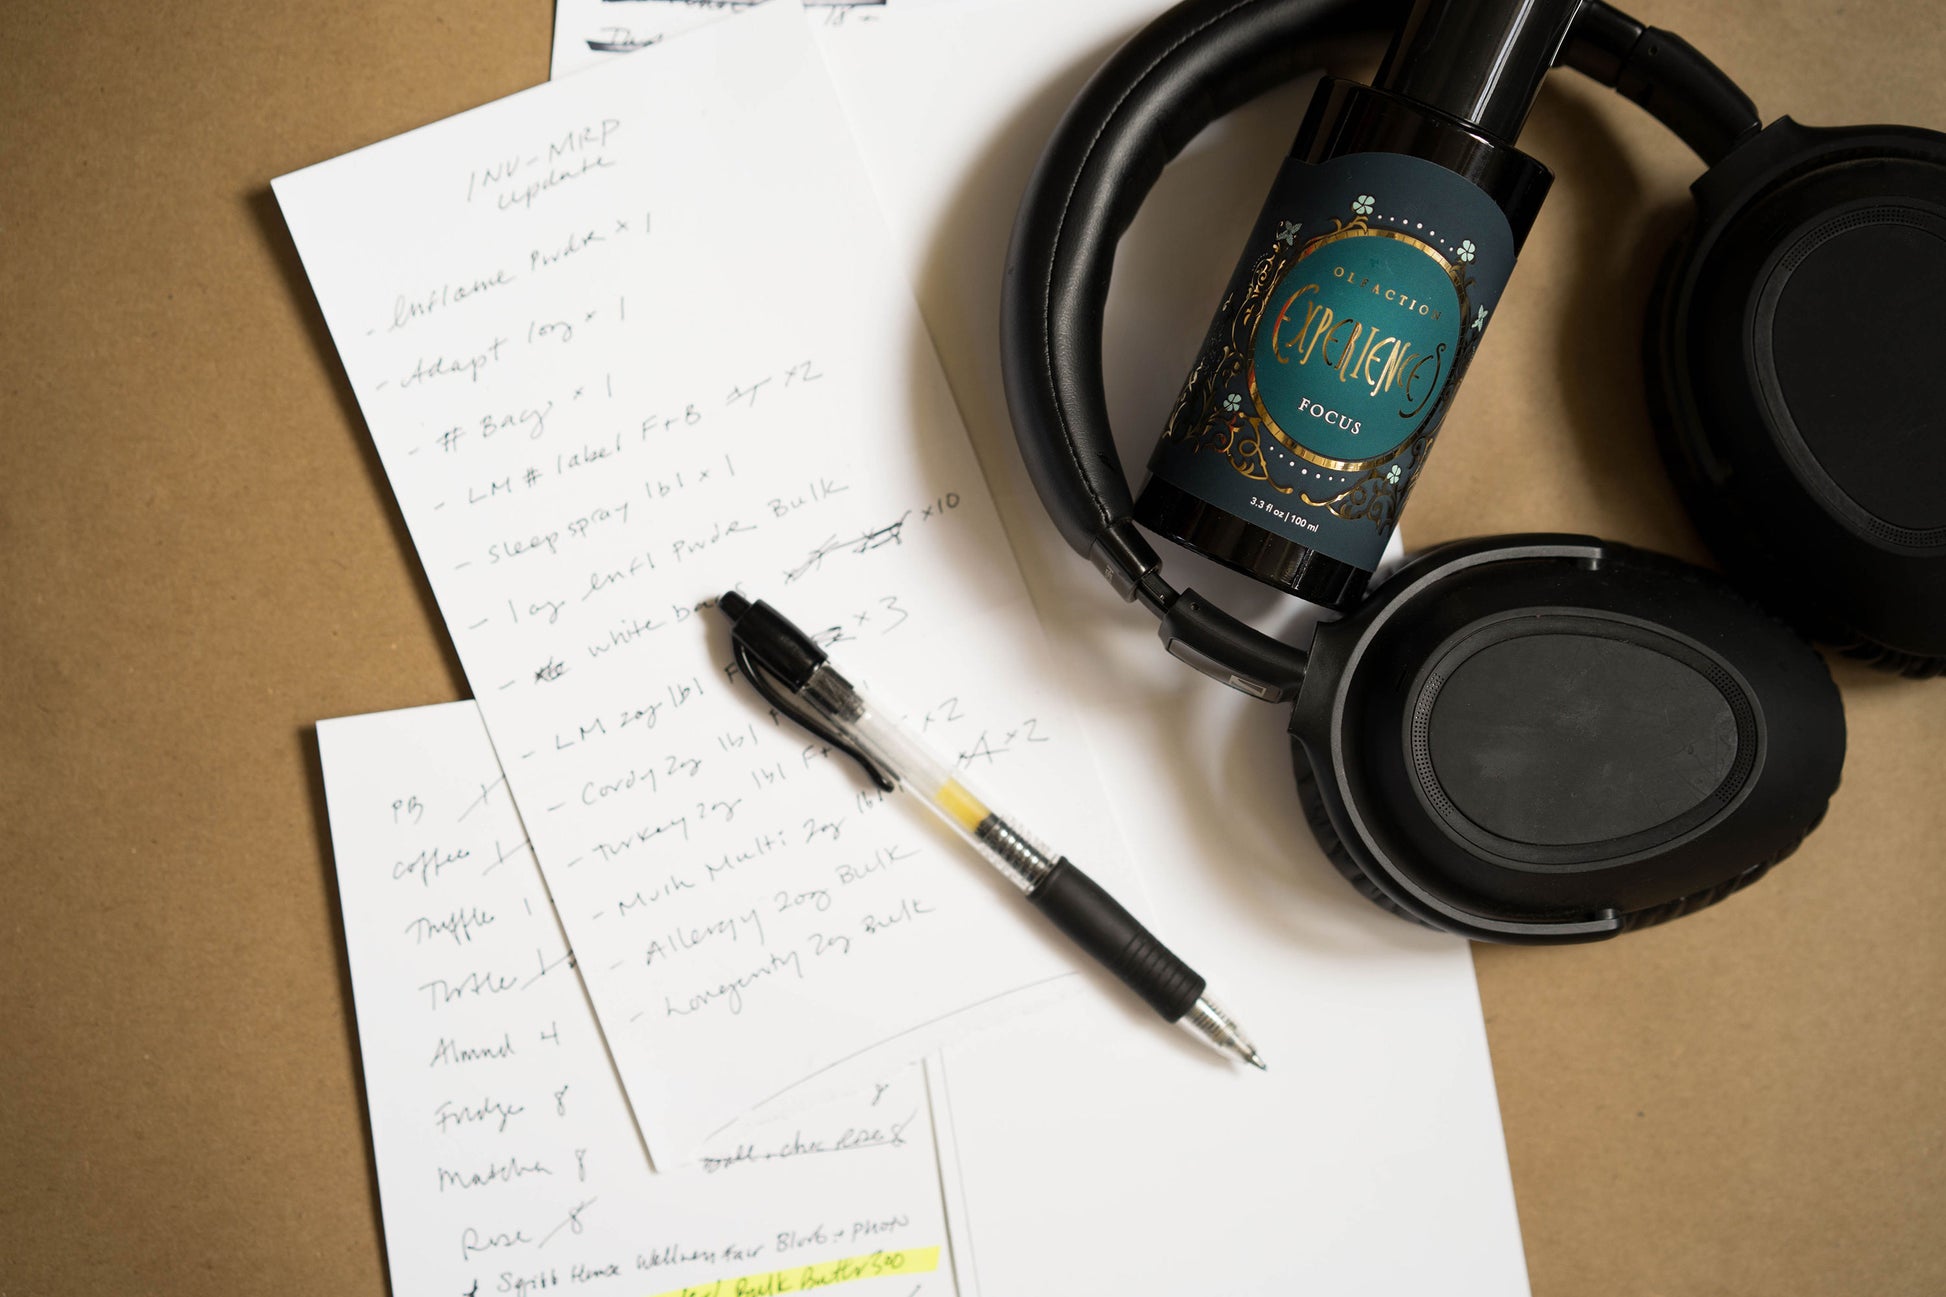 INV-MRP
update
- Inflame Pwdr x 1
- Adapt 1oz x 1
- # Bags x 1
- LM # label F+B x2
- Sleep spray lbl x 1
- 1oz Infl Pwdr Bulk
- white bags x10
- LM 2oz lbl x 3
- Cordy 2oz lbl x2
- Turkey 2oz lbl F+
- Mush Multi 2oz lbl x4 x2
- Allergy 2oz Bulk
- Longevity 2oz Bulk
PB 1
Coffee 1
Truffle 1
Turtle 1
Almond 4
Fridge 8
Matcha 8
Rose 8
choc Rose 8
Wellness Fair Blurb + photo
Bulk Butter 300
OLFACTION
EXPERIENCES
FOCUS
3.3 fl oz | 100 ml